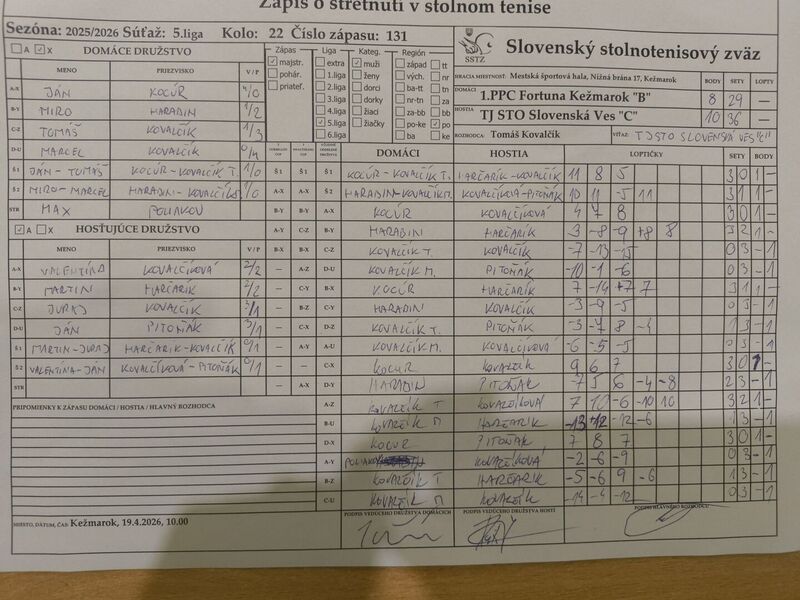 Zápis o stretnutí v stolnom tenise
Sezóna: 2025/2026 Súťaž: 5.liga Kolo: 22 Číslo zápasu: 131
A X DOMÁCE DRUŽSTVO
MENO PRIEZVISKO V / P
A-X JÁN KOCÚR 4/0
B-Y MIRO HARABIN 1/2
C-Z TOMÁŠ KOVALČÍK 1/3
D-U MARCEL KOVALČÍK 0/4
Š1 JÁN - TOMÁŠ KOCÚR - KOVALČÍK T. 1/0
Š2 MIRO - MARCEL HARABIN - KOVALČÍK 1/0
STR MAX POLIAKOV
A X HOSŤUJÚCE DRUŽSTVO
MENO PRIEZVISKO V / P
A-X VALENTÍNA KOVALČÍKOVÁ 2/2
B-Y MARTIN HARČARIK 2/2
C-Z JURAJ KOVALČÍK 3/1
D-U JÁN PITOŇÁK 3/1
Š1 MARTIN - JURAJ HARČARIK - KOVALČÍK 0/1
Š2 VALENTÍNA - JÁN KOVALČÍKOVÁ - PITOŇÁK 0/1
STR
PRIPOMIENKY K ZÁPASU DOMÁCI / HOSTIA / HLAVNÝ ROZHODCA
MIESTO, DÁTUM, ČAS: Kežmarok, 19.4.2026, 10.00
Zápas
majstr.
pohár.
priateľ.
Liga
extra
1.liga
2.liga
3.liga
4.liga
5.liga
6.liga
Kateg.
muži
ženy
dorci
dorky
žiaci
žiačky
Región
západ tt
vých. nr
ba-tt tn
nr-tn za
za-bb bb
po-ke po
ba ke
SSTZ
Slovenský stolnotenisový zväz
HRACIA MIESTNOSŤ: Mestská športová hala, Nižná brána 17, Kežmarok BODY SETY LOPTY
DOMÁCI 1.PPC Fortuna Kežmarok "B" 8 29 —
HOSTIA TJ STO Slovenská Ves "C" 10 36 —
ROZHODCA: Tomáš Kovalčík VÍŤAZ: TJ STO SLOVENSKÁ VES "C"
DOMÁCI HOSTIA LOPTIČKY SETY BODY
Š1 Š1 Š1 KOCÚR - KOVALČÍK T. HARČARIK - KOVALČÍK 11 8 5 3 0 1 -
A-X A-X Š2 HARABIN - KOVALČÍK M. KOVALČÍKOVÁ - PITOŇÁK 10 11 -5 11 3 1 1 -
B-Y B-Y A-X KOCÚR KOVALČÍKOVÁ 4 7 8 3 0 1 -
A-Y C-Z B-Y HARABIN HARČARIK -3 -8 9 8 3 2 1 -
B-X B-X C-Z KOVALČÍK T. KOVALČÍK -7 -13 -15 0 3 - 1
— A-Z D-U KOVALČÍK M. PITOŇÁK -10 -1 -6 0 3 - 1
— C-Y B-X KOCÚR HARČARIK 7 -14 7 3 1 1 -
— B-Z C-Y HARABIN KOVALČÍK -3 -9 -5 0 3 - 1
— C-X D-Z KOVALČÍK T. PITOŇÁK -3 -7 8 -4 1 3 - 1
— A-Y A-U KOVALČÍK M. KOVALČÍKOVÁ -6 -5 -5 0 3 - 1
— — C-X KOCÚR KOVALČÍK 9 6 7 3 0 1
— A-X D-Y HARABIN PITOŇÁK -7 5 6 -4 -8 2 3 - 1
A-Z KOVALČÍK T KOVALČÍKOVÁ 7 10 -6 -10 10 3 2 1 -
B-U KOVALČÍK M HARČARIK -13 -12 -6 1 3 - 1
D-X KOCÚR PITOŇÁK 7 8 7 3 0 1 -
A-Y POLIAKOV KOVALČÍKOVÁ -2 -6 -9 0 3 - 1
B-Z KOVALČÍK T HARČARIK -5 -6 9 -6 1 3 - 1
C-U KOVALČÍK M KOVALČÍK -14 -4 -12 0 3 - 1
PODPIS VEDÚCEHO DRUŽSTVA DOMÁCICH PODPIS VEDÚCEHO DRUŽSTVA HOSTÍ PODPIS HLAVNÉHO ROZHODCU